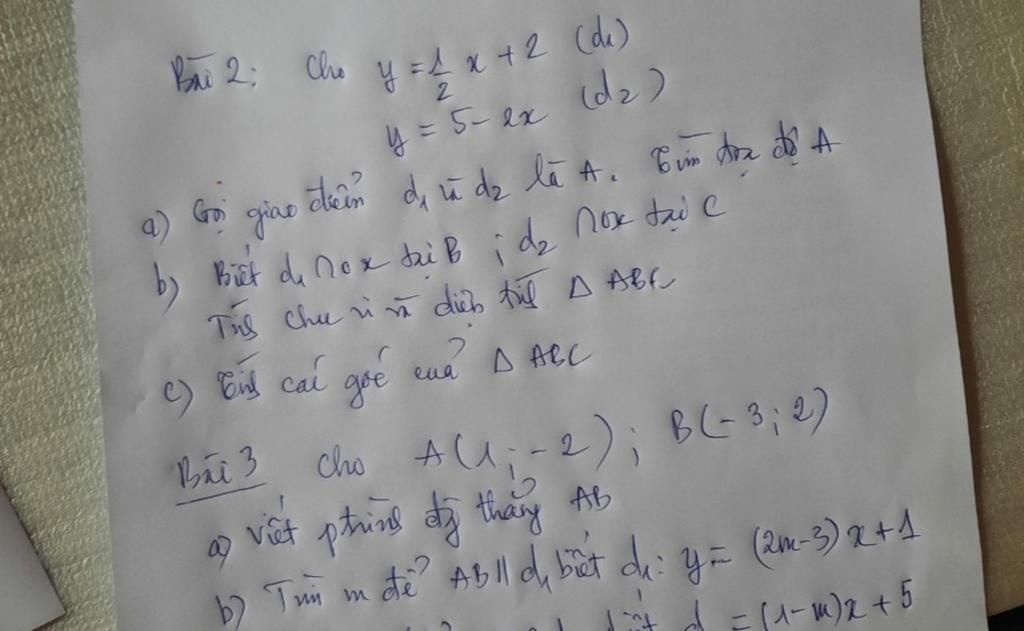 Bài 2: Cho y = 1/2 x + 2 (d1)
y = 5 - 2x (d2)
a) Gọi giao điểm d1 và d2 là A. Tìm tọa độ A
b) Biết d1 ∩ ox tại B ; d2 ∩ ox tại C
Tính chu vi và diện tích Δ ABC
c) Tính các góc của Δ ABC
Bài 3 Cho A(1; -2); B(-3; 2)
a) Viết phtrình đg thẳng AB
b) Tìm m để AB // d1 biết d1: y = (2m-3)x + 1
= (1-m)x + 5